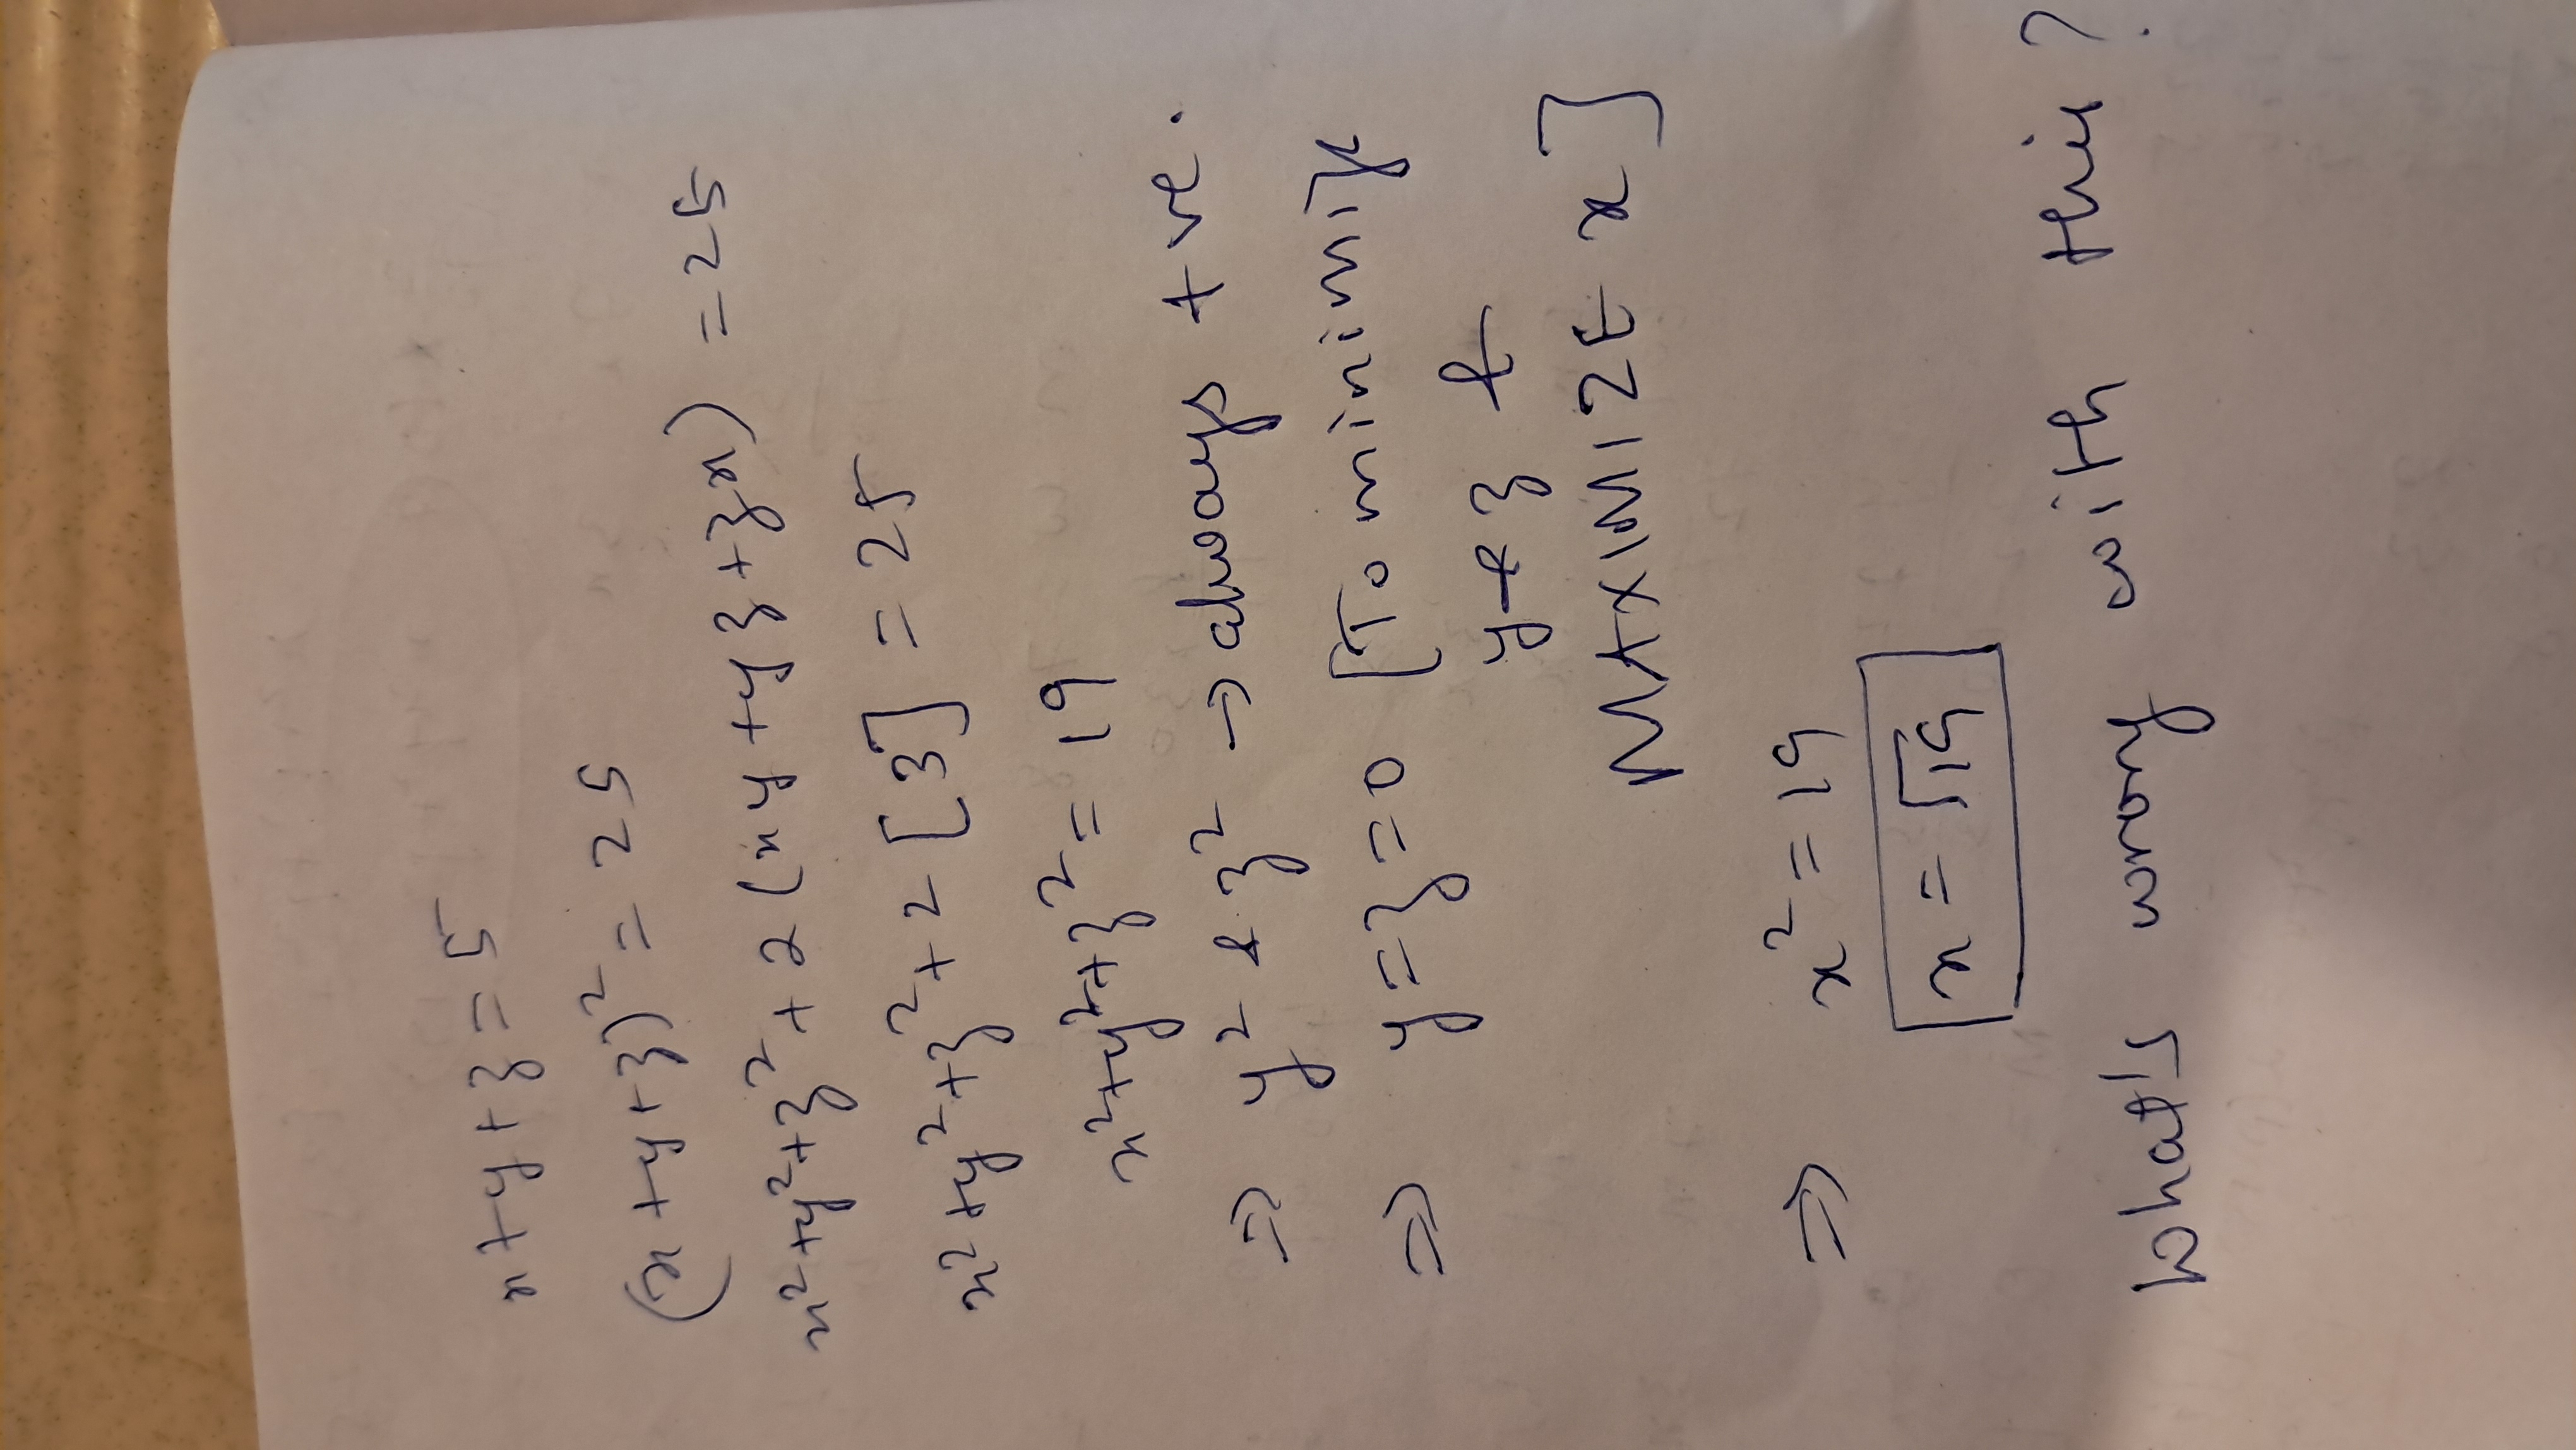 x + y + z = 5
(x + y + z)² = 25
x² + y² + z² + 2(xy + yz + zx) = 25
x² + y² + z² + 2[3] = 25
x² + y² + z² = 19
⇒ y² & z² → always +ve.
⇒ y = z = 0 [To minimize
y & z &
MAXIMIZE x]
⇒ x² = 19
x = √19
What's wrong with this?